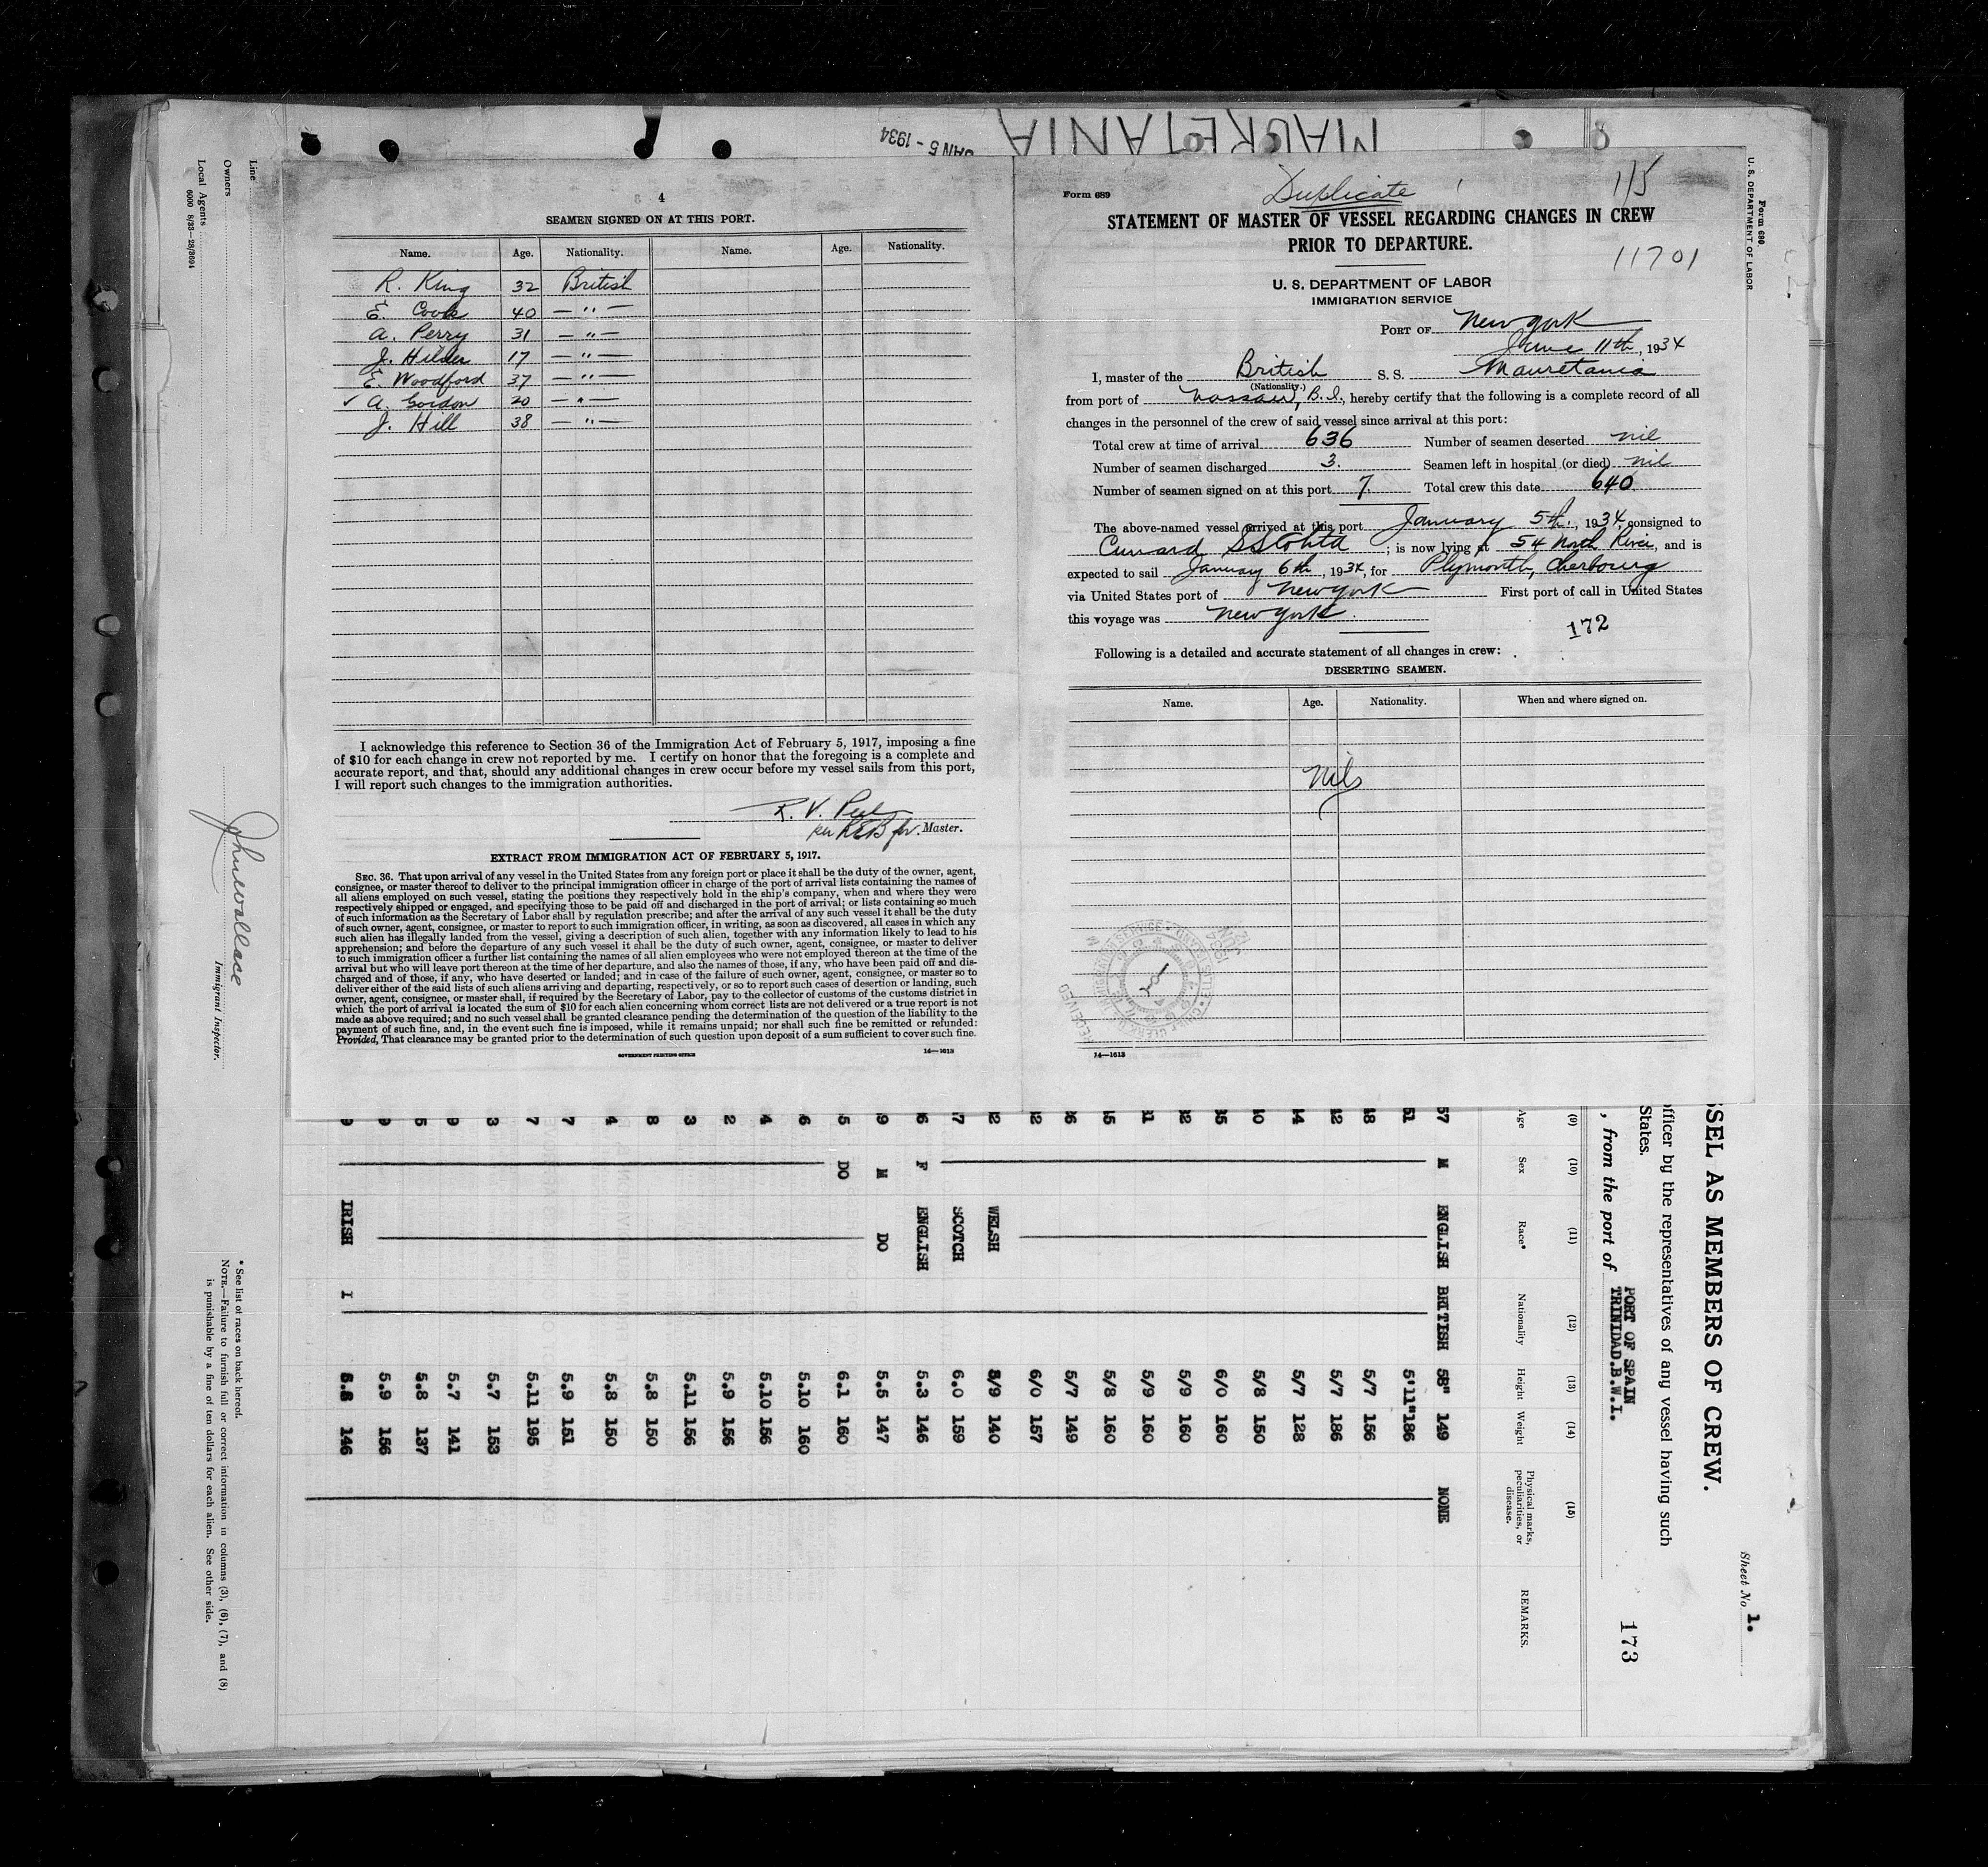 JAN 5 - 1934
MAURETANIA
4
SEAMEN SIGNED ON AT THIS PORT.
Name. Age. Nationality. Name. Age. Nationality.
R. King 32 British
E. Cook 40 — " —
A. Perry 31 — " —
J. Hilder 17 — " —
E. Woodford 37 — " —
✓ A. Gordon 20 — " —
J. Hill 38 — " —
I acknowledge this reference to Section 36 of the Immigration Act of February 5, 1917, imposing a fine
of $10 for each change in crew not reported by me. I certify on honor that the foregoing is a complete and
accurate report, and that, should any additional changes in crew occur before my vessel sails from this port,
I will report such changes to the immigration authorities.
R. V. Peel
per for Master.
EXTRACT FROM IMMIGRATION ACT OF FEBRUARY 5, 1917.
SEC. 36. That upon arrival of any vessel in the United States from any foreign port or place it shall be the duty of the owner, agent,
consignee, or master thereof to deliver to the principal immigration officer in charge of the port of arrival lists containing the names of
all aliens employed on such vessel, stating the positions they respectively hold in the ship's company, when and where they were
respectively shipped or engaged, and specifying those to be paid off and discharged in the port of arrival; or lists containing so much
of such information as the Secretary of Labor shall by regulation prescribe; and after the arrival of any such vessel it shall be the duty
of such owner, agent, consignee, or master to report to such immigration officer, in writing, as soon as discovered, all cases in which any
such alien has illegally landed from the vessel, giving a description of such alien, together with any information likely to lead to his
apprehension; and before the departure of any such vessel it shall be the duty of such owner, agent, consignee, or master to deliver
to such immigration officer a further list containing the names of all alien employees who were not employed thereon at the time of the
arrival but who will leave port thereon at the time of her departure, and also the names of those, if any, who have been paid off and dis-
charged and of those, if any, who have deserted or landed; and in case of the failure of such owner, agent, consignee, or master so to
deliver either of the said lists of such aliens arriving and departing, respectively, or so to report such cases of desertion or landing, such
owner, agent, consignee, or master shall, if required by the Secretary of Labor, pay to the collector of customs of the customs district in
which the port of arrival is located the sum of $10 for each alien concerning whom correct lists are not delivered or a true report is not
made as above required; and no such vessel shall be granted clearance pending the determination of the question of the liability to the
payment of such fine, and, in the event such fine is imposed, while it remains unpaid; nor shall such fine be remitted or refunded:
Provided, That clearance may be granted prior to the determination of such question upon deposit of a sum sufficient to cover such fine.
GOVERNMENT PRINTING OFFICE 14—1613
Form 689
Duplicate
1/5
STATEMENT OF MASTER OF VESSEL REGARDING CHANGES IN CREW
PRIOR TO DEPARTURE.
11701
U. S. DEPARTMENT OF LABOR
IMMIGRATION SERVICE
PORT OF New York
11th, 1934
I, master of the British S. S. Mauretania
(Nationality.)
from port of Nassau, B. I., hereby certify that the following is a complete record of all
changes in the personnel of the crew of said vessel since arrival at this port:
Total crew at time of arrival 636 Number of seamen deserted nil
Number of seamen discharged 3. Seamen left in hospital (or died) nil
Number of seamen signed on at this port 7. Total crew this date 640
The above-named vessel arrived at this port January 5th., 1934, consigned to
Cunard SSCo Ltd; is now lying at 54 North River, and is
expected to sail January 6th, 1934, for Plymouth, Cherbourg
via United States port of New York First port of call in United States
this voyage was New York.
172
Following is a detailed and accurate statement of all changes in crew:
DESERTING SEAMEN.
Name. Age. Nationality. When and where signed on.
Nil
14—1613
Form 680
U. S. DEPARTMENT OF LABOR
Sheet No 1.
SSEL AS MEMBERS OF CREW.
officer by the representatives of any vessel having such
States.
, from the port of PORT OF SPAIN
TRINIDAD.B.W.I.
173
(9) (10) (11) (12) (13) (14) (15)
Age Sex Race* Nationality Height Weight Physical marks, peculiarities, or disease. REMARKS.
57 M ENGLISH BRITISH 58" 149 NONE
51 5'11" 186
48 5/7 156
42 5/7 186
44 5/7 128
40 5/8 150
35 6/0 160
32 5/9 160
41 5/9 160
45 5/8 160
36 5/7 149
42 6/0 157
42 WELSH 5/9 140
7 SCOTCH 6.0 159
6 F ENGLISH 5.3 146
9 M DO 5.5 147
5 DO 6.1 160
6 5.10 160
4 5.10 156
2 5.9 156
3 5.11 156
8 5.8 150
4 5.8 150
7 5.9 151
7 5.11 195
3 5.7 153
9 5.7 141
5 5.8 137
9 5.9 156
9 IRISH I 5.8 146
Line
Owners
Local Agents
6000 8/33—28/3694
John Wallace
Immigrant Inspector.
* See list of races on back hereof.
NOTE.—Failure to furnish full or correct information in columns (3), (6), (7), and (8)
is punishable by a fine of ten dollars for each alien. See other side.